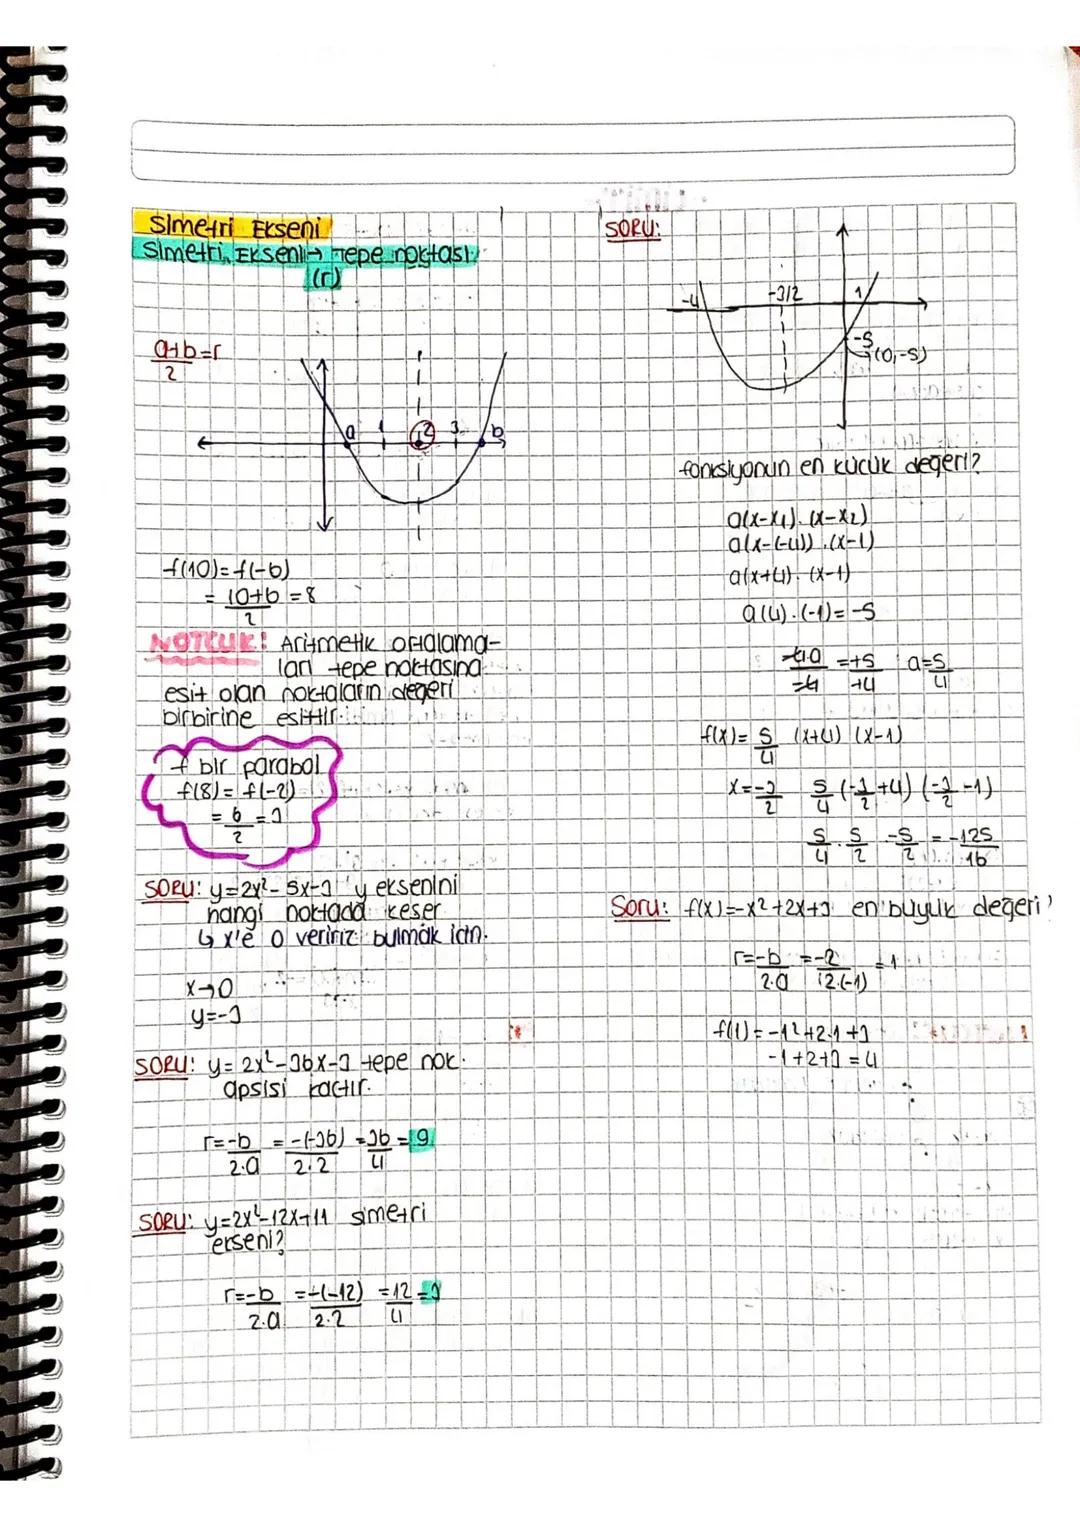 Simetri Ekseni
Simetri Ekseni → Tepe noktası
(r)
a+b/2 = r
a 1 2 3 b
f(10) = f(-6)
= 10+6/2 = 8
NOTCUK! Aritmetik ortalama-
ları tepe noktasına
eşit olan noktaların değeri
birbirine eşittir.
f bir parabol
f(8) = f(-2)
= 6/2 = 3
SORU: y=2x²-5x-3 'y eksenini
hangi noktada keser
↳ x'e 0 veririz bulmak için.
x→0
y=-3
SORU: y=2x²-36x-3 tepe nok.
apsisi kaçtır.
r=-b/2.a = -(-36)/2.2 = 36/4 = 9
SORU: y=2x²-12x+11 simetri
ekseni?
r=-b/2.a = -(-12)/2.2 = 12/4 = 3
SORU:
-4 -3/2 1
-5
(0,-5)
fonksiyonun en küçük değeri?
a(x-x1).(x-x2)
a(x-(-4)).(x-1)
a(x+4).(x-1)
a(4).(-1)=-5
-4a/-4 = +5/+4 a=5/4
f(x)=5/4 (x+4) (x-1)
x=-3/2 5/4 (-3/2+4) (-3/2-1)
5/4 . 5/2 . -5/2 = -125/16
Soru: f(x)=-x²+2x+3 en büyük değeri?
r=-b/2.a = -2/2.(-1) = 1
f(1)=-1²+2.1+3
-1+2+3=4